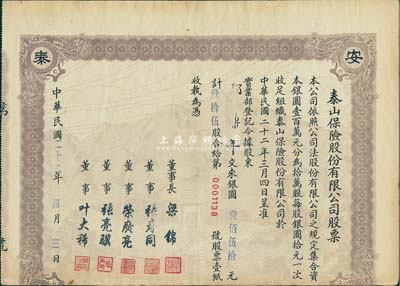 安
泰
泰山保險股份有限公司股票
本公司依照公司法股份有限公司之規定集合資
本銀圓壹百萬元分為拾萬股每股銀圓拾元一次
收足組織泰山保險股份有限公司於
中華民國二十二年三月四日呈准
實業部登記今據股東
年交來銀圓壹佰伍拾元
計拾伍股合給第0001138號股票壹紙
收執為憑
董事長 梁錦
董事 同
董事 榮廣亮
董事 張亮驥
董事 叶大稀
中華民國二十二年 四月 三日